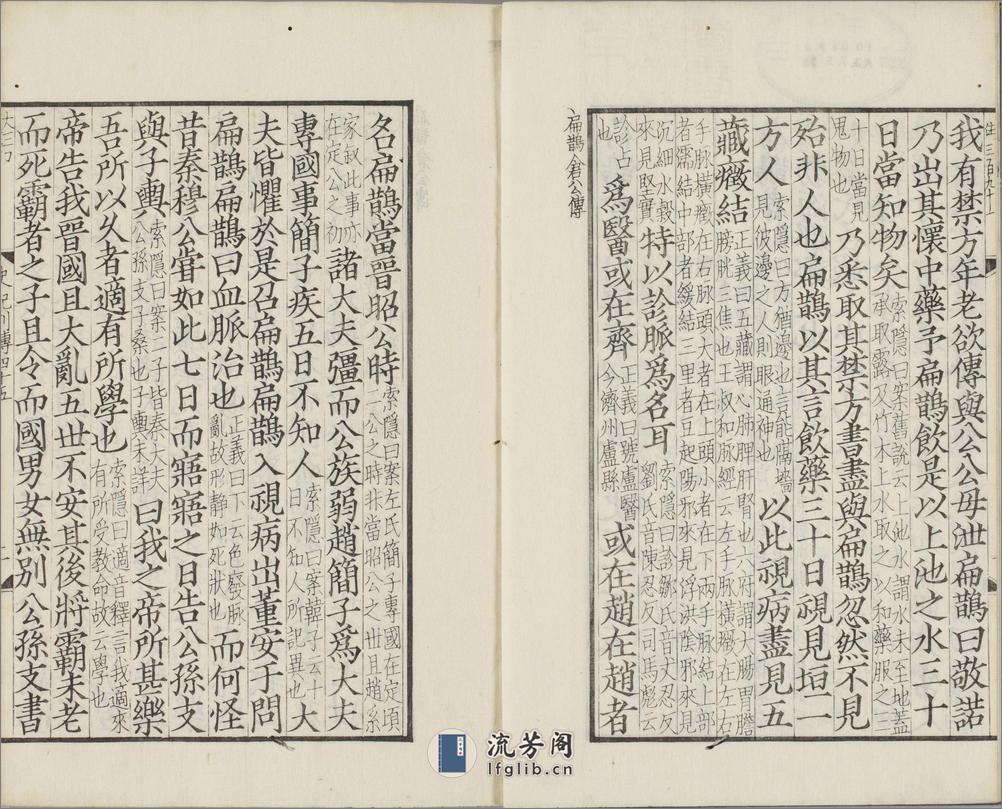 我有禁方年老欲傳與公公毋泄扁鵲曰敬諾
乃出其懷中藥予扁鵲飲是以上池之水三十
日當知物矣索隱曰案舊說云上池水謂水未至地蓋承取露及竹木上水取之以和藥服之三
十日當見鬼物也乃悉取其禁方書盡與扁鵲忽然不見
殆非人也扁鵲以其言飲藥三十日視見垣一
方人索隱曰方猶邊也言能隔墻見彼邊之人則眼通神也以此視病盡見五
藏癥結正義曰五藏謂心肺脾肝腎也六府謂大腸胃膽膀胱三焦也王叔和脈經云左手脈橫癥在左右
手脈橫癥在右脈頭大者在上頭小者在下兩手脈結上部者濡結中部者緩結三里者豆起陽邪來見浮洪陰邪來見
沉細水穀來見堅實特以診脈爲名耳索隱曰診鄒氏音丈忍反劉氏音陳忍反司馬彪云
診占也爲醫或在齊正義曰號盧醫今濟州盧縣或在趙在趙者
扁鵲倉公傳
名扁鵲當晉昭公時索隱曰案左氏簡子專國在定頃二公之時非當昭公之世且趙系
家叙此事亦在定公之初諸大夫彊而公族弱趙簡子爲大夫
專國事簡子疾五日不知人索隱曰案韓子云十日不知人所記異也大
夫皆懼於是召扁鵲扁鵲入視病出董安于問
扁鵲扁鵲曰血脈治也正義曰下云色廢脈亂故形静如死狀也而何怪
昔秦穆公甞如此七日而寤寤之日告公孫支
與子輿索隱曰案二子皆秦大夫公孫支子桑也子輿未詳曰我之帝所甚樂
吾所以久者適有所學也索隱曰適音釋言我適來有所受教命故云學也
帝告我晉國且大亂五世不安其後將霸未老
而死霸者之子且令而國男女無別公孫支書
史記列傳四十五
流芳阁
lfglib.cn